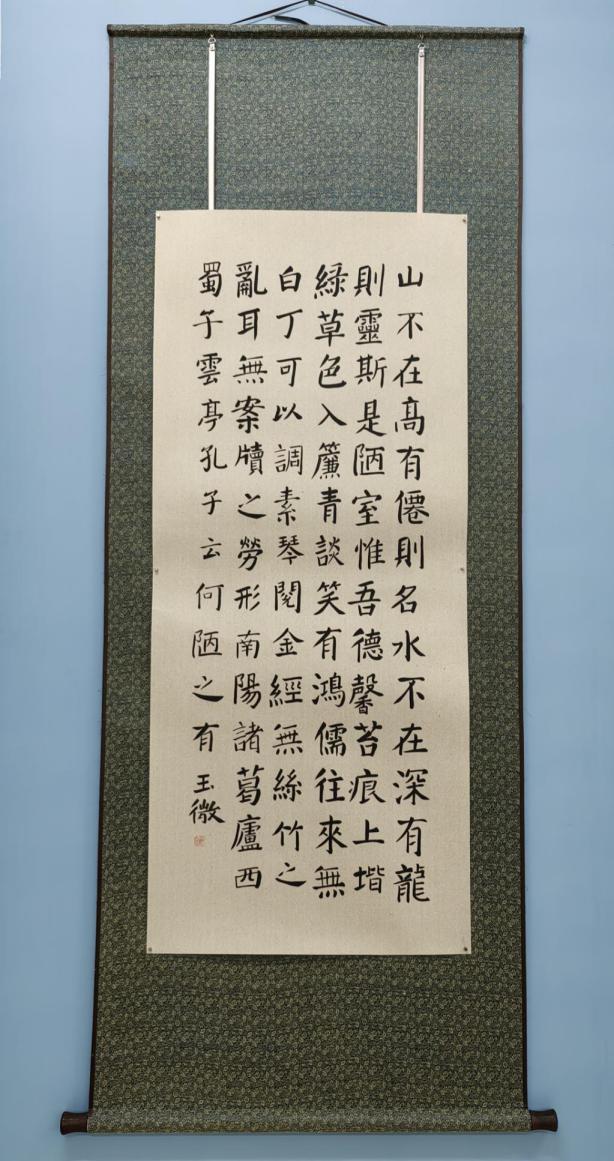 山不在高有僊則名水不在深有龍
則靈斯是陋室惟吾德馨苔痕上堦
綠草色入簾青談笑有鴻儒往來無
白丁可以調素琴閱金經無絲竹之
亂耳無案牘之勞形南陽諸葛廬西
蜀子雲亭孔子云何陋之有 玉微